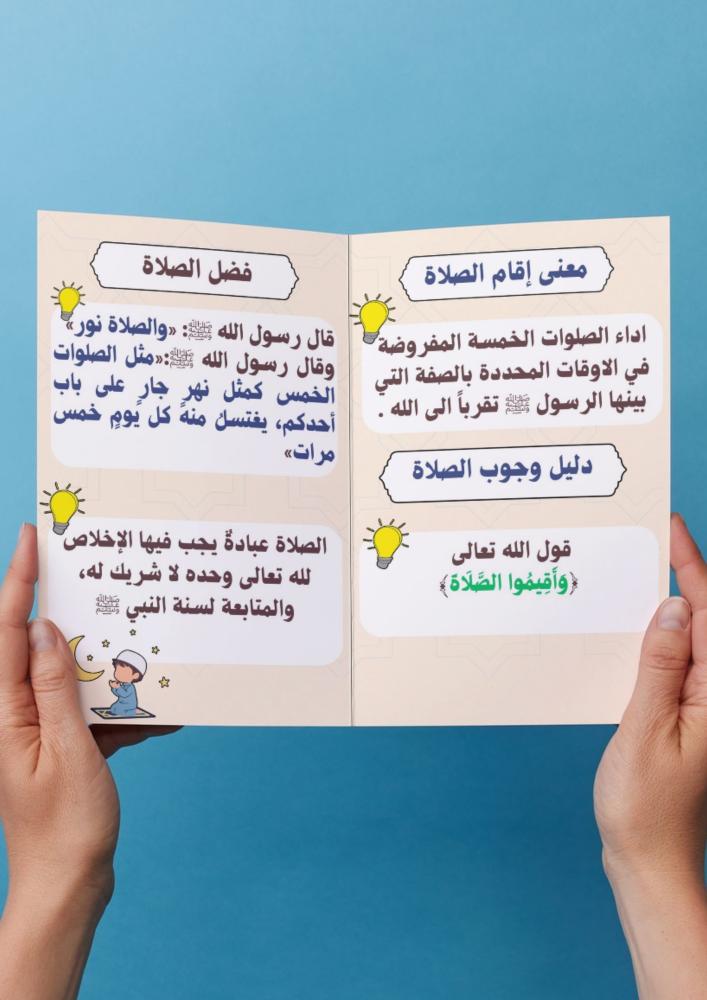 معنى إقام الصلاة
اداء الصلوات الخمسة المفروضة
في الاوقات المحددة بالصفة التي
بينها الرسول ﷺ تقرباً الى الله .
دليل وجوب الصلاة
قول الله تعالى
﴿وَأَقِيمُوا الصَّلَاةَ﴾
فضل الصلاة
قال رسول الله ﷺ: «والصلاة نور»
وقال رسول الله ﷺ:«مثل الصلوات
الخمس كمثل نهرٍ جارٍ على باب
أحدكم، يغتسلُ منهُ كل يومٍ خمس
مرات»
الصلاة عبادةٌ يجب فيها الإخلاص
لله تعالى وحده لا شريك له،
والمتابعة لسنة النبي ﷺ